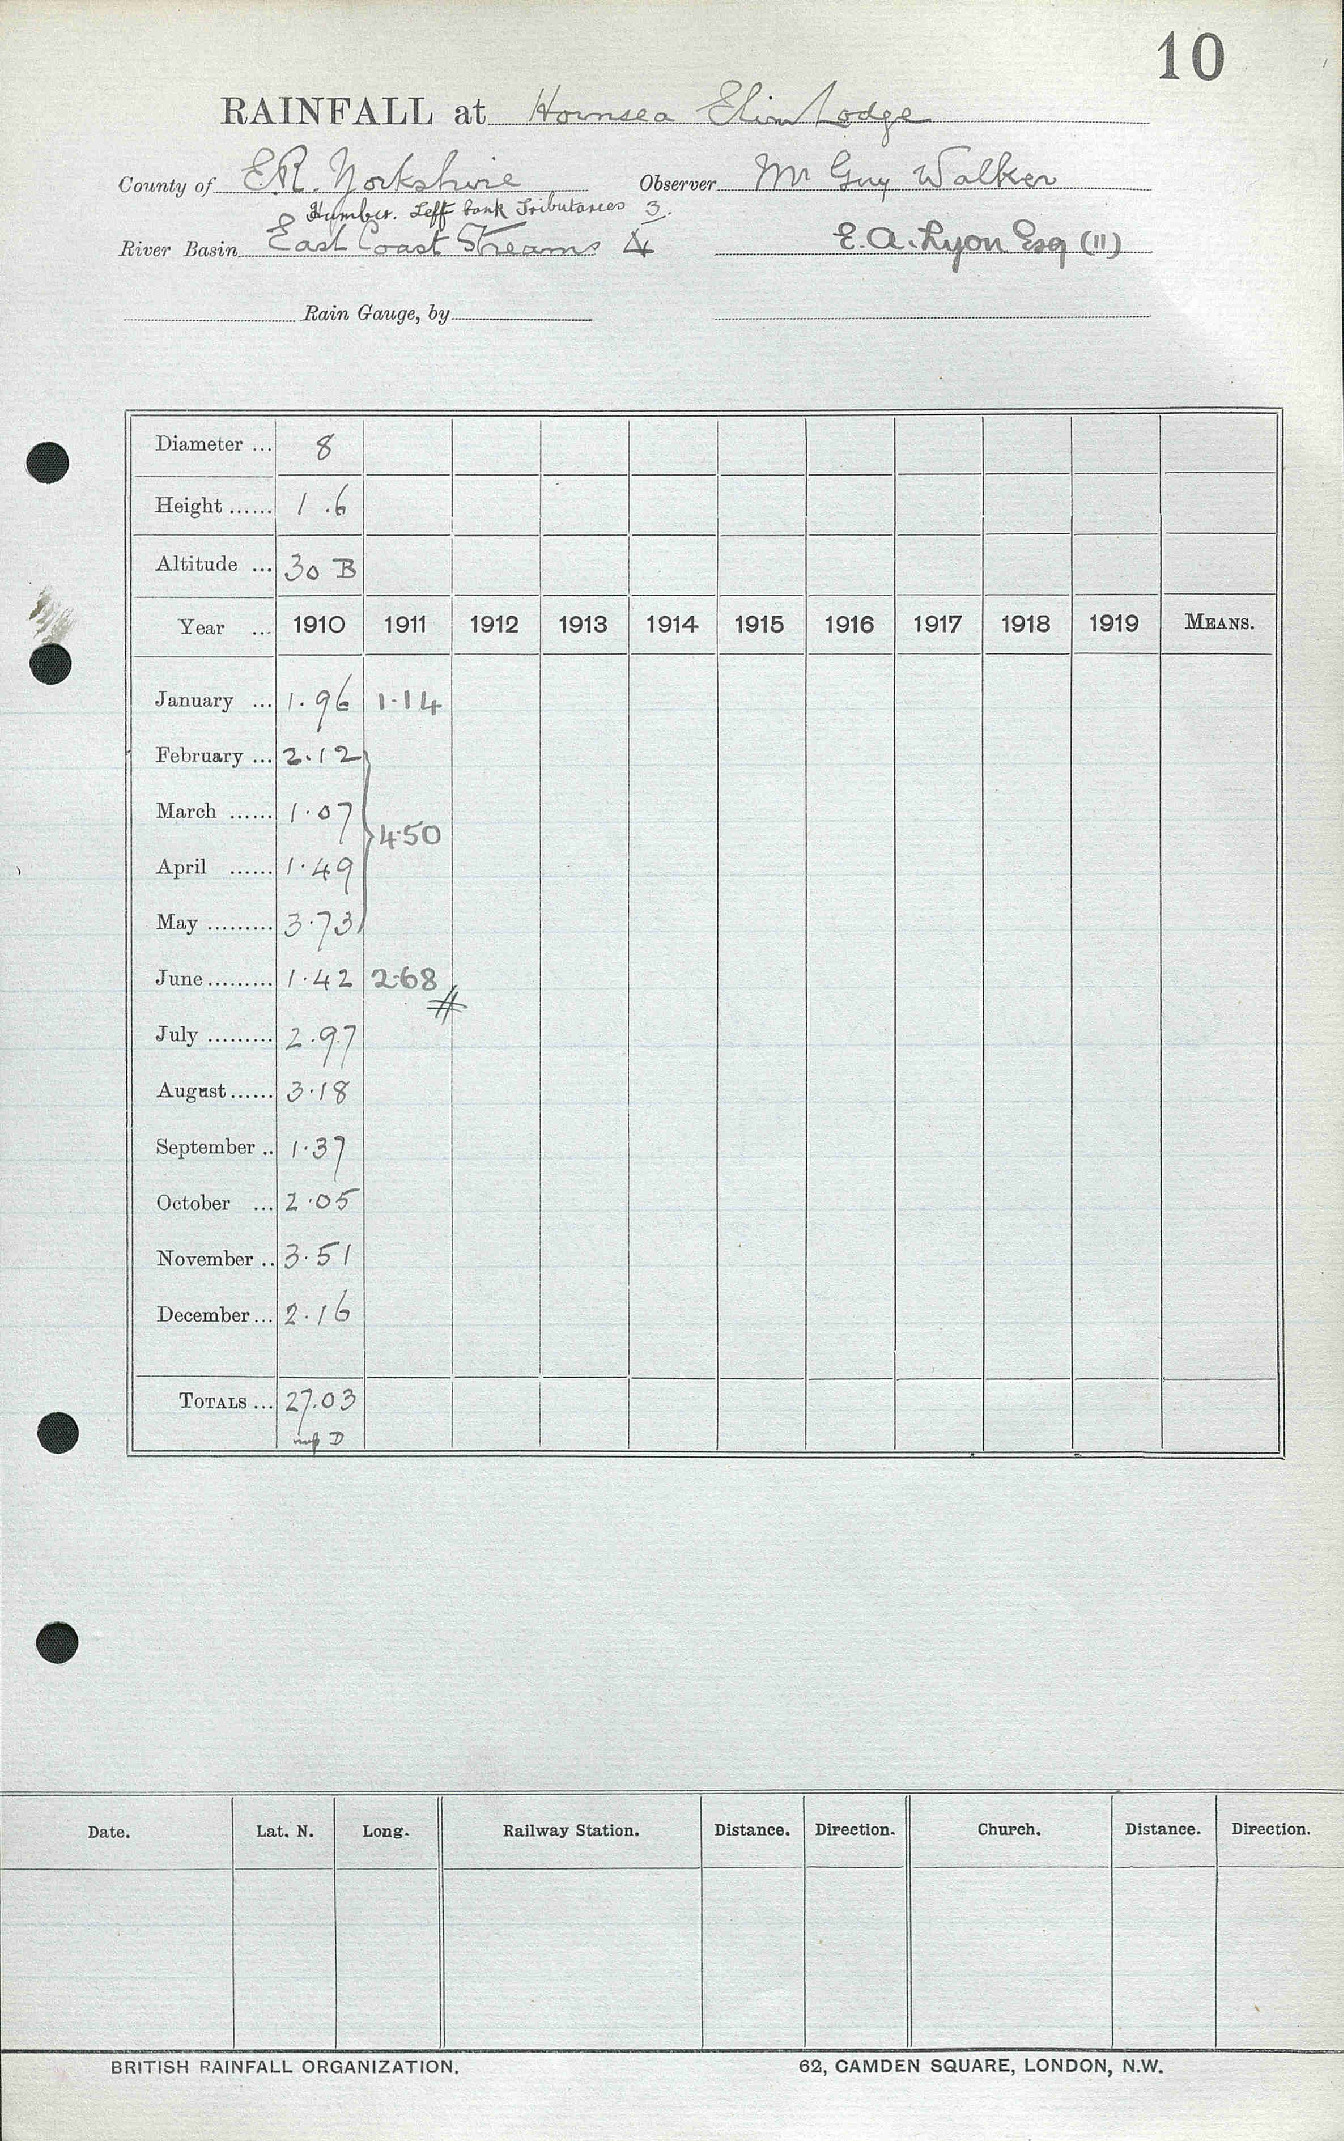 10
RAINFALL at Hornsea Elim Lodge
County of E.R. Yorkshire Observer Mr Guy Walker
Humber. Left bank Tributaries 3.
River Basin East Coast Streams 4 E. A. Lyon Esq (11)
Rain Gauge, by
Diameter ... 8
Height ...... 1 .6
Altitude ... 30 B
Year ... 1910 1911 1912 1913 1914 1915 1916 1917 1918 1919 MEANS.
January ... 1.96 1.14
February ... 2.12
March ...... 1.07
4.50
April ...... 1.49
May ......... 3.73
June ......... 1.42 2.68
#
July ......... 2.97
August ...... 3.18
September .. 1.37
October ... 2.05
November .. 3.51
December ... 2.16
TOTALS ... 27.03
D
Date. Lat. N. Long. Railway Station. Distance. Direction. Church. Distance. Direction.
BRITISH RAINFALL ORGANIZATION. 62, CAMDEN SQUARE, LONDON, N.W.